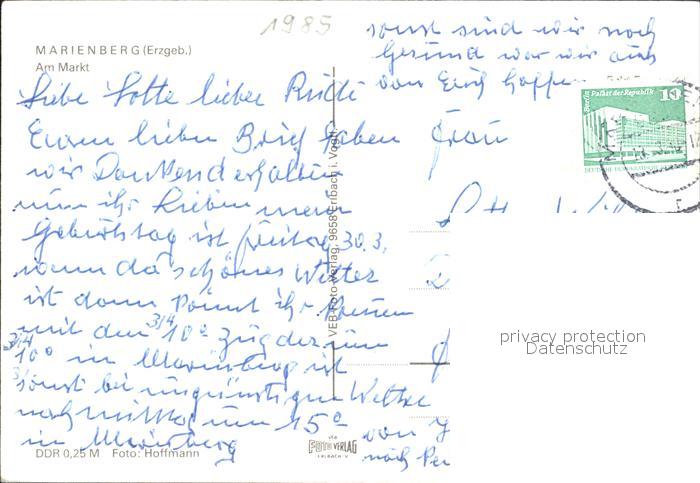 1985
MARIENBERG (Erzgeb.)
Am Markt
Liebe Lotte lieber Rudi
Euren lieben Brief haben
wir Dankend erhalten
nun ihr Lieben mein
Geburtstag ist Freitag 30.3,
wenn da schönes Wetter
ist dann könnt ihr kommen
mit dem 3/4 10° Zug der um
3/4 10° in Marienberg ist
sonst bei ungünstigen Wetter
nachmittag um 15°
in Marienberg
sonst sind wir noch
Gesund was wir auch
von Euch hoffen
Frau
von
nach
Berlin Palast der Republik
10
DEUTSCHE DEMOKRATISCHE
VEB Foto-Verlag, 9659 Erlbach i. Vogtl.
privacy protection
Datenschutz
DDR 0,25 M Foto: Hoffmann
FOTO VERLAG
ERLBACH · V